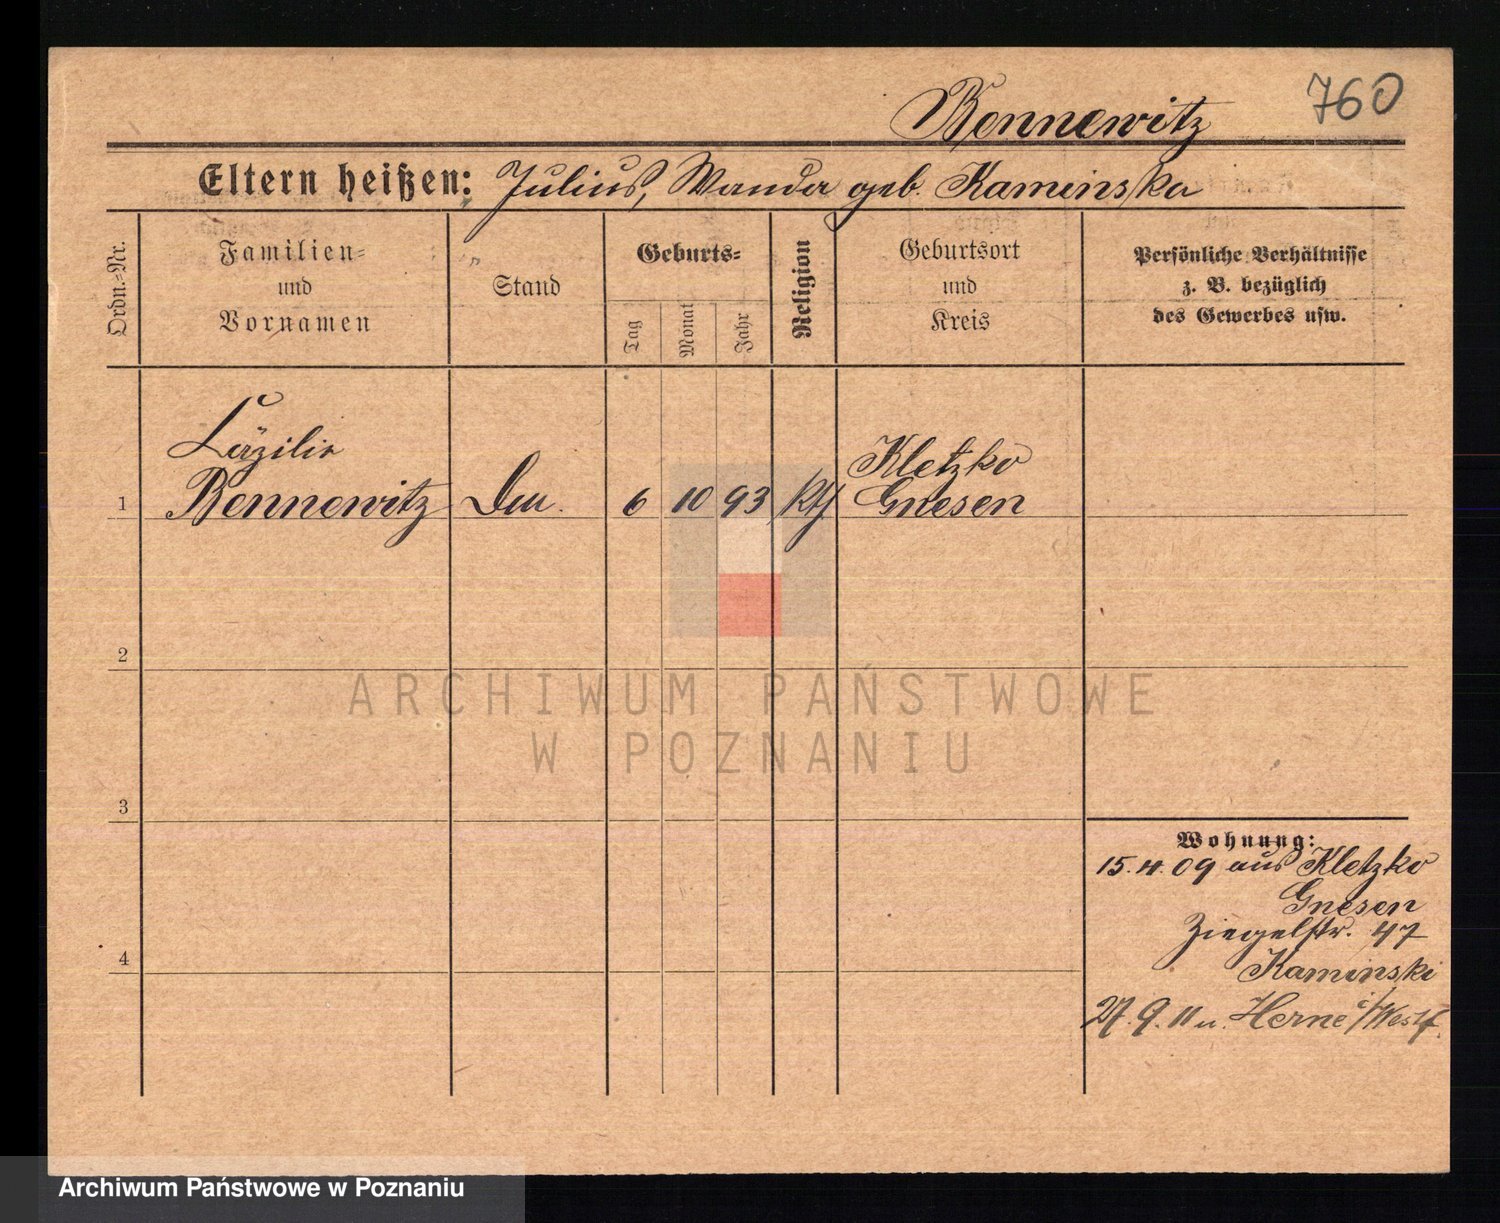 760
Bennewitz
Eltern heißen: Julius, Wanda geb. Kaminska
Ordn.-Nr.
Familien-
und
Vornamen
Stand
Geburts-
Tag
Monat
Jahr
Religion
Geburtsort
und
Kreis
Persönliche Verhältnisse
z. B. bezüglich
des Gewerbes usw.
Cäzilie
Kletzko
1 Bennewitz 6 10 93 kth Gnesen
2
3
4
Wohnung:
15.4.09 aus Kletzko
Gnesen
Ziegelstr. 47
Kaminski
27.9.11 n. Herne i/Westf.
ARCHIWUM PAŃSTWOWE
W POZNANIU
Archiwum Państwowe w Poznaniu